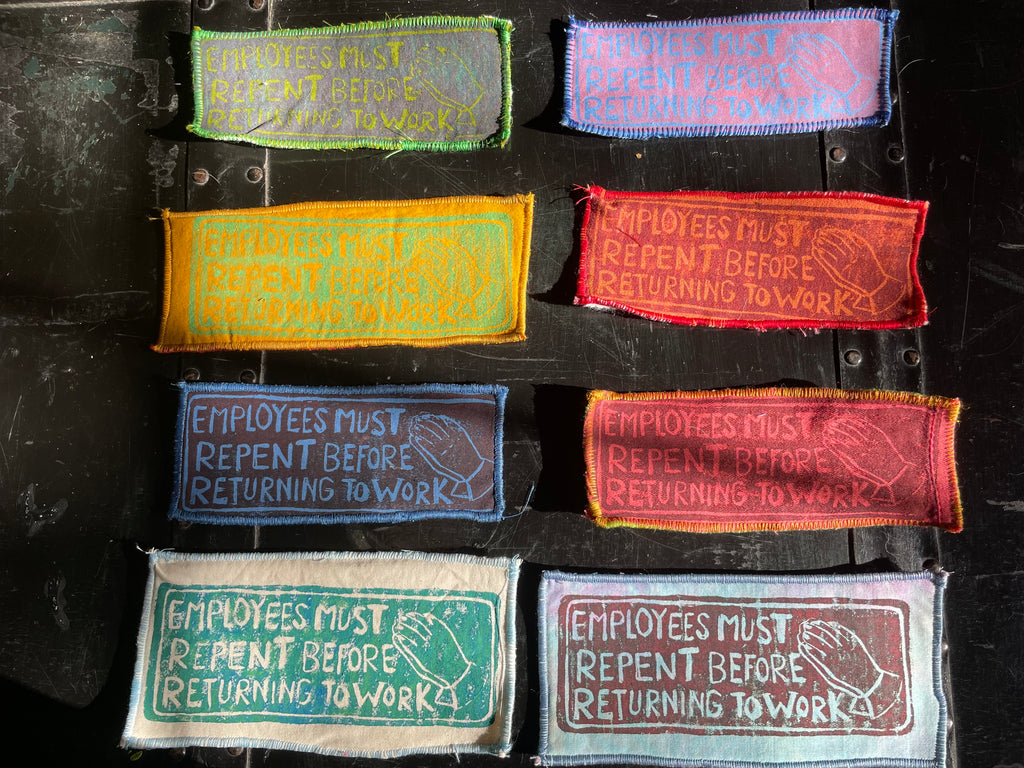 EMPLOYEES MUST
REPENT BEFORE
RETURNING TO WORK
EMPLOYEES MUST
REPENT BEFORE
RETURNING TO WORK
EMPLOYEES MUST
REPENT BEFORE
RETURNING TO WORK
EMPLOYEES MUST
REPENT BEFORE
RETURNING TO WORK
EMPLOYEES MUST
REPENT BEFORE
RETURNING TO WORK
EMPLOYEES MUST
REPENT BEFORE
RETURNING TO WORK
EMPLOYEES MUST
REPENT BEFORE
RETURNING TO WORK
EMPLOYEES MUST
REPENT BEFORE
RETURNING TO WORK